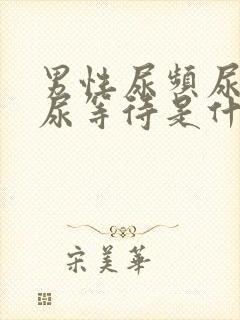 男性尿频尿
尿等待是什
宋美華